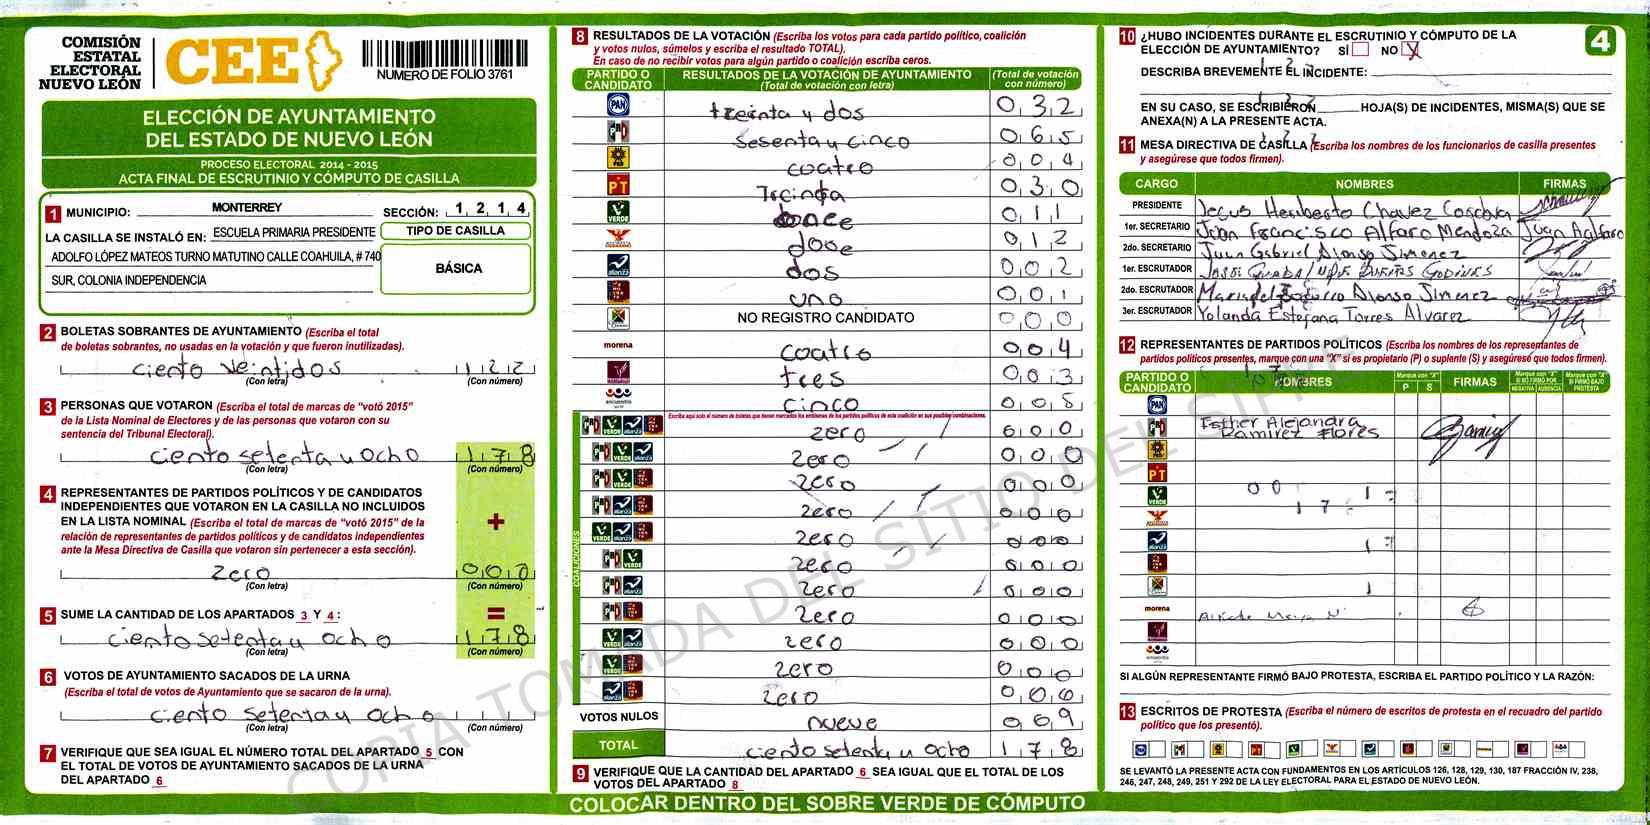 COMISIÓN
ESTATAL
ELECTORAL
NUEVO LEÓN
CEE
NUMERO DE FOLIO 3761
ELECCIÓN DE AYUNTAMIENTO
DEL ESTADO DE NUEVO LEÓN
PROCESO ELECTORAL 2014 - 2015
ACTA FINAL DE ESCRUTINIO Y CÓMPUTO DE CASILLA
1 MUNICIPIO: MONTERREY SECCIÓN: 1 2 1 4
LA CASILLA SE INSTALÓ EN: ESCUELA PRIMARIA PRESIDENTE
ADOLFO LÓPEZ MATEOS TURNO MATUTINO CALLE COAHUILA, # 740
SUR, COLONIA INDEPENDENCIA
TIPO DE CASILLA
BÁSICA
2 BOLETAS SOBRANTES DE AYUNTAMIENTO (Escriba el total
de boletas sobrantes, no usadas en la votación y que fueron inutilizadas).
ciento veintidos 1 2 2
(Con letra) (Con número)
3 PERSONAS QUE VOTARON (Escriba el total de marcas de "votó 2015"
de la Lista Nominal de Electores y de las personas que votaron con su
sentencia del Tribunal Electoral).
ciento setenta y ocho 1 7 8
(Con letra) (Con número)
4 REPRESENTANTES DE PARTIDOS POLÍTICOS Y DE CANDIDATOS
INDEPENDIENTES QUE VOTARON EN LA CASILLA NO INCLUIDOS
EN LA LISTA NOMINAL (Escriba el total de marcas de "votó 2015" de la
relación de representantes de partidos políticos y de candidatos independientes
ante la Mesa Directiva de Casilla que votaron sin pertenecer a esta sección).
+
zero 0 0 0
(Con letra) (Con número)
5 SUME LA CANTIDAD DE LOS APARTADOS 3 Y 4 : =
ciento setenta y ocho 1 7 8
(Con letra) (Con número)
6 VOTOS DE AYUNTAMIENTO SACADOS DE LA URNA
(Escriba el total de votos de Ayuntamiento que se sacaron de la urna).
ciento setenta y ocho
(Con letra) (Con número)
7 VERIFIQUE QUE SEA IGUAL EL NÚMERO TOTAL DEL APARTADO 5 CON
EL TOTAL DE VOTOS DE AYUNTAMIENTO SACADOS DE LA URNA
DEL APARTADO 6
8 RESULTADOS DE LA VOTACIÓN (Escriba los votos para cada partido político, coalición
y votos nulos, súmelos y escriba el resultado TOTAL).
En caso de no recibir votos para algún partido o coalición escriba ceros.
PARTIDO O CANDIDATO RESULTADOS DE LA VOTACIÓN DE AYUNTAMIENTO (Total de votación con letra) (Total de votación con número)
PAN treinta y dos 0 3 2
PRD sesenta y cinco 0 6 5
PRD cuatro 0 0 4
PT Treinta 0 3 0
VERDE 0 1 1
dose 0 1 2
alianza dos 0 0 2
uno 0 0 1
NO REGISTRO CANDIDATO 0 0 0
morena cuatro 0 0 4
tres 0 0 3
encuentro cinco 0 0 5
COALICIONES
Escriba aquí solo el número de boletas que tienen marcados los emblemas de los partidos políticos de esta coalición en sus posibles combinaciones.
zero 0 0 0
zero 0 0 0
zero 0 0 0
zero 0 0 0
zero 0 0 0
zero 0 0 0
zero 0 0 0
zero 0 0 0
zero 0 0 0
zero 0 0 0
zero 0 0 0
VOTOS NULOS nueve 0 0 9
TOTAL ciento setenta y ocho 1 7 8
9 VERIFIQUE QUE LA CANTIDAD DEL APARTADO 6 SEA IGUAL QUE EL TOTAL DE LOS
VOTOS DEL APARTADO 8
COLOCAR DENTRO DEL SOBRE VERDE DE CÓMPUTO
4
10 ¿HUBO INCIDENTES DURANTE EL ESCRUTINIO Y CÓMPUTO DE LA
ELECCIÓN DE AYUNTAMIENTO? SÍ NO X
DESCRIBA BREVEMENTE EL INCIDENTE:
EN SU CASO, SE ESCRIBIERON HOJA(S) DE INCIDENTES, MISMA(S) QUE SE
ANEXA(N) A LA PRESENTE ACTA.
11 MESA DIRECTIVA DE CASILLA (Escriba los nombres de los funcionarios de casilla presentes
y asegúrese que todos firmen).
CARGO NOMBRES FIRMAS
PRESIDENTE Jesus Heriberto Chavez
1er. SECRETARIO Juan Francisco Alfaro Mendoza Juan Alfaro
2do. SECRETARIO Juan Gabriel Alonso Jimenez
1er. ESCRUTADOR
2do. ESCRUTADOR Maria del Socorro Alonso Jimenez
3er. ESCRUTADOR Yolanda Estefana Torres Alvarez
12 REPRESENTANTES DE PARTIDOS POLÍTICOS (Escriba los nombres de los representantes de
partidos políticos presentes, marque con una "X" si es propietario (P) o suplente (S) y asegúrese que todos firmen).
PARTIDO O CANDIDATO NOMBRES Marque con "X" P S FIRMAS Marque con "X" SI NO FIRMÓ POR NEGATIVA AUSENCIA Marque con "X" SI FIRMÓ BAJO PROTESTA
PAN
Esther Alejandra
Ramirez Flores
PRD
PT
VERDE
alianza
morena
encuentro
SI ALGÚN REPRESENTANTE FIRMÓ BAJO PROTESTA, ESCRIBA EL PARTIDO POLÍTICO Y LA RAZÓN:
13 ESCRITOS DE PROTESTA (Escriba el número de escritos de protesta en el recuadro del partido
político que los presentó).
SE LEVANTÓ LA PRESENTE ACTA CON FUNDAMENTOS EN LOS ARTÍCULOS 126, 128, 129, 130, 187 FRACCIÓN IV, 238,
246, 247, 248, 249, 251 Y 292 DE LA LEY ELECTORAL PARA EL ESTADO DE NUEVO LEÓN.
COPIA TOMADA DEL SITIO DEL SIPRE